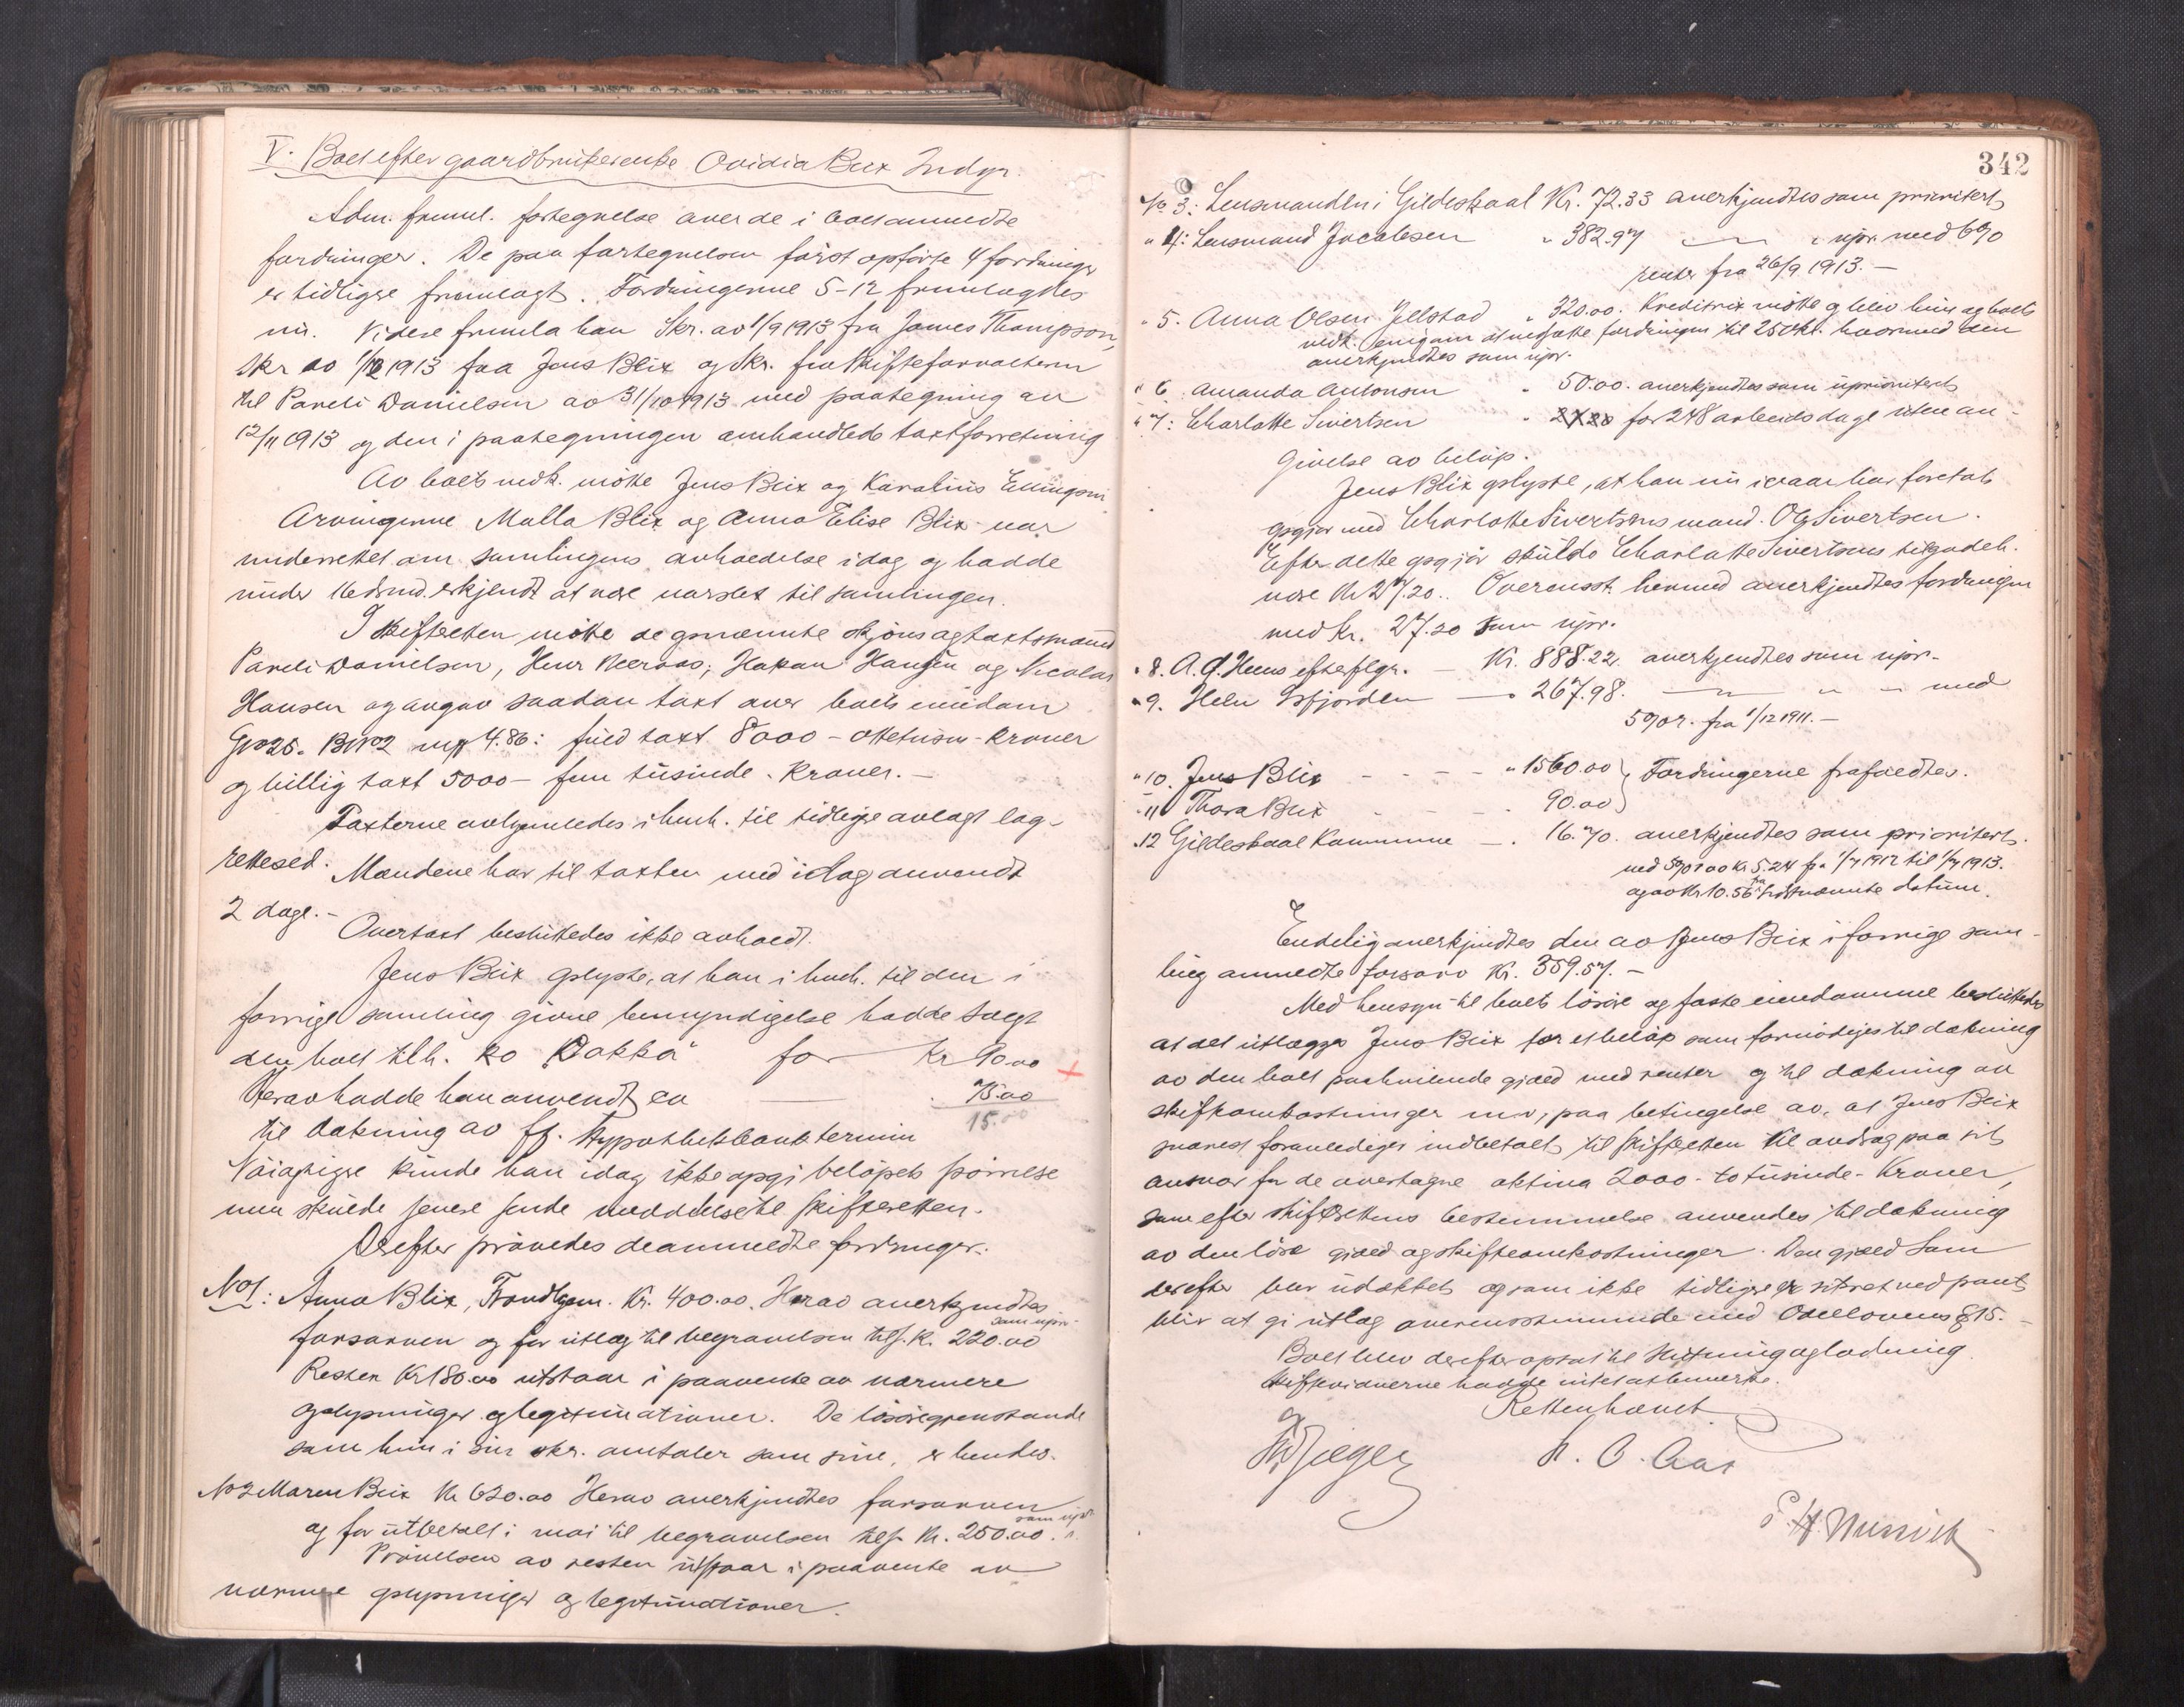 V. Boet efter gaardbrukerenke Ovidia Blix Indyr.
Adm. freml. fortegnelse over de i boet anmeldte
fordringer. De paa fortegnelsen först opförte 4 fordringer
er tidligere fremlagt. Fordringerne 5-12 fremlagdes
nu. Videre fremla han Skr. av 1/9 1913 fra James Thompson,
Skr av 1913 fra Jens Blix og Skr. fra Skifteforvalteren
til Pareli Danielsen av 31/10 1913 med paategning av
12/11 1913 og den i paategningen omhandlede taxtforretning
Av boets vedk. mötte Jens Blix og Karolius Ellingsen
Arvingerne Malla Blix og Anna Elise Blix var
underrettet om samlingens avholdelse idag og hadde
under 16 ds md. erkjendt at være varslet til samlingen.
I skifteretten mötte de opnævnte skjöns og taxtsmænd
Pareli Danielsen, Hakan Hansen og Nicolai
Hansen og avgav saadan taxt over boets eiendom
Gno 25. Bno 2 4.86: fuld taxt 8000 - ottetusen - kroner
og billig taxt 5000 - fem tusinde - Kroner. -
Taxterne avhjemledes i henh. til tidligere avlagt lag-
rettesed. Mændene har til taxten med idag anvendt
2 dage. -
Overtaxt besluttedes ikke avholdt.
Jens Blix oplyste, at han i henh. til den i
forrige samling givne bemyndigelse hadde solgt
den boet tilh. ko "Dokka" for Kr 90.00 +
Herav hadde han anvendt ca — . 75.00
15.00
til dækning av ff. Hypothekbank termin
Nöiagtigere kunde han idag ikke opgi belöpets störrelse
men skulde senere sende meddelse til Skifteretten.
Derefter prövedes de anmeldte fordringer.
No 1: Anna Blix, Kr. 400.00. Herav anerkjendtes
som upr.
forsaaven og for utlæg til begravelsen tils. kr. 220.00
Resten Kr 180.00 utstaar i paavente av nærmere
oplysninger og legitimationer. De lösöregjenstande
som hun i sin skr. omtaler som sine, er hendes.
No 2 Maren Blix Kr 620.00 Herav anerkjendtes
som upr.
og for utbetalt i mai til begravelsen tils. Kr. 250.00.
Prövelsen av resten utstaar i paavente av
nærmere oplysninger og legitimationer.
342
No 3: Lensmanden i Gildeskaal Kr. 72.33 anerkjendtes som prioritert
" 4: Lensmand Jacobsen " 382.97 — " — upr. med 6%
renter fra 26/9 1913. -
" 5. Anna Olsen Jellstad " 320.00. Kreditrix mötte og blev hun og boets
vedk. enig om at nedsætte fordringen til 250 kr. hvormed den
anerkjendtes som upr.
" 6 Amanda Antonsen " 50.00. anerkjendtes som uprioritert
" 7: Charlotte Sivertsen " 27.20 for 248 arbeidsdage uten an-
givelse av belöp.
Jens Blix oplyste, at han nu ivaar har foretat
opgjör med Charlotte Sivertsens mand. Ole Sivertsen.
Efter dette opgjör skulde Charlotte Sivertsens tilgodeh.
være Kr 27.20. Overensst. hermed anerkjendtes fordringen
med kr. 27.20 som upr.
" 8. A. J. efterflgr. — Kr. 888.22. anerkjendtes som upr.
" 9. Helen Isfjorden — " 267.98. — " — " — " med
5% r. fra 1/12 1911. -
" 10. Jens Blix - - - - " 1560.00 } Fordringerne frafaldtes.
" 11 Thora Blix - - - . 90.00 }
" 12 Gildeskaal Kommune — . 16.70. anerkjendtes som prioritert
med 5% r av Kr 5.24 fra 1/7 1912 til 1/7 1913.
og av Kr 10.56 fra sidstnævnte datum.
Endelig anerkjendtes den av Jens Blix i forrige sam-
ling anmeldte forsaav Kr. 359.57. -
Med hensyn til boets lösöre og faste eiendomme besluttedes
at det utlægges Jens Blix for et belöp som fornödiges til dækning
av den boet paahvilende gjæld med renter og til dækning av
skifteomkostninger m.v., paa betingelse av, at Jens Blix
snarest foranlediges indbetalt til Skifteretten til avdrag paa sit
ansvar for de overtagne aktiva 2000 - to tusinde - Kroner,
som efter skifterettens bestemmelse anvendes til dækning
av den löse gjæld og skifteomkostninger. Den gjæld som
derefter blir udækket og som ikke tidligere er sikret ved pant
blir at gi utlæg overensstemmende med Odelslovens § 15. -
Boet blev derefter optat til slutning og lodning.
Skiftevidnerne havde intet at bemerke.
Retten hævet
N. O. Aas